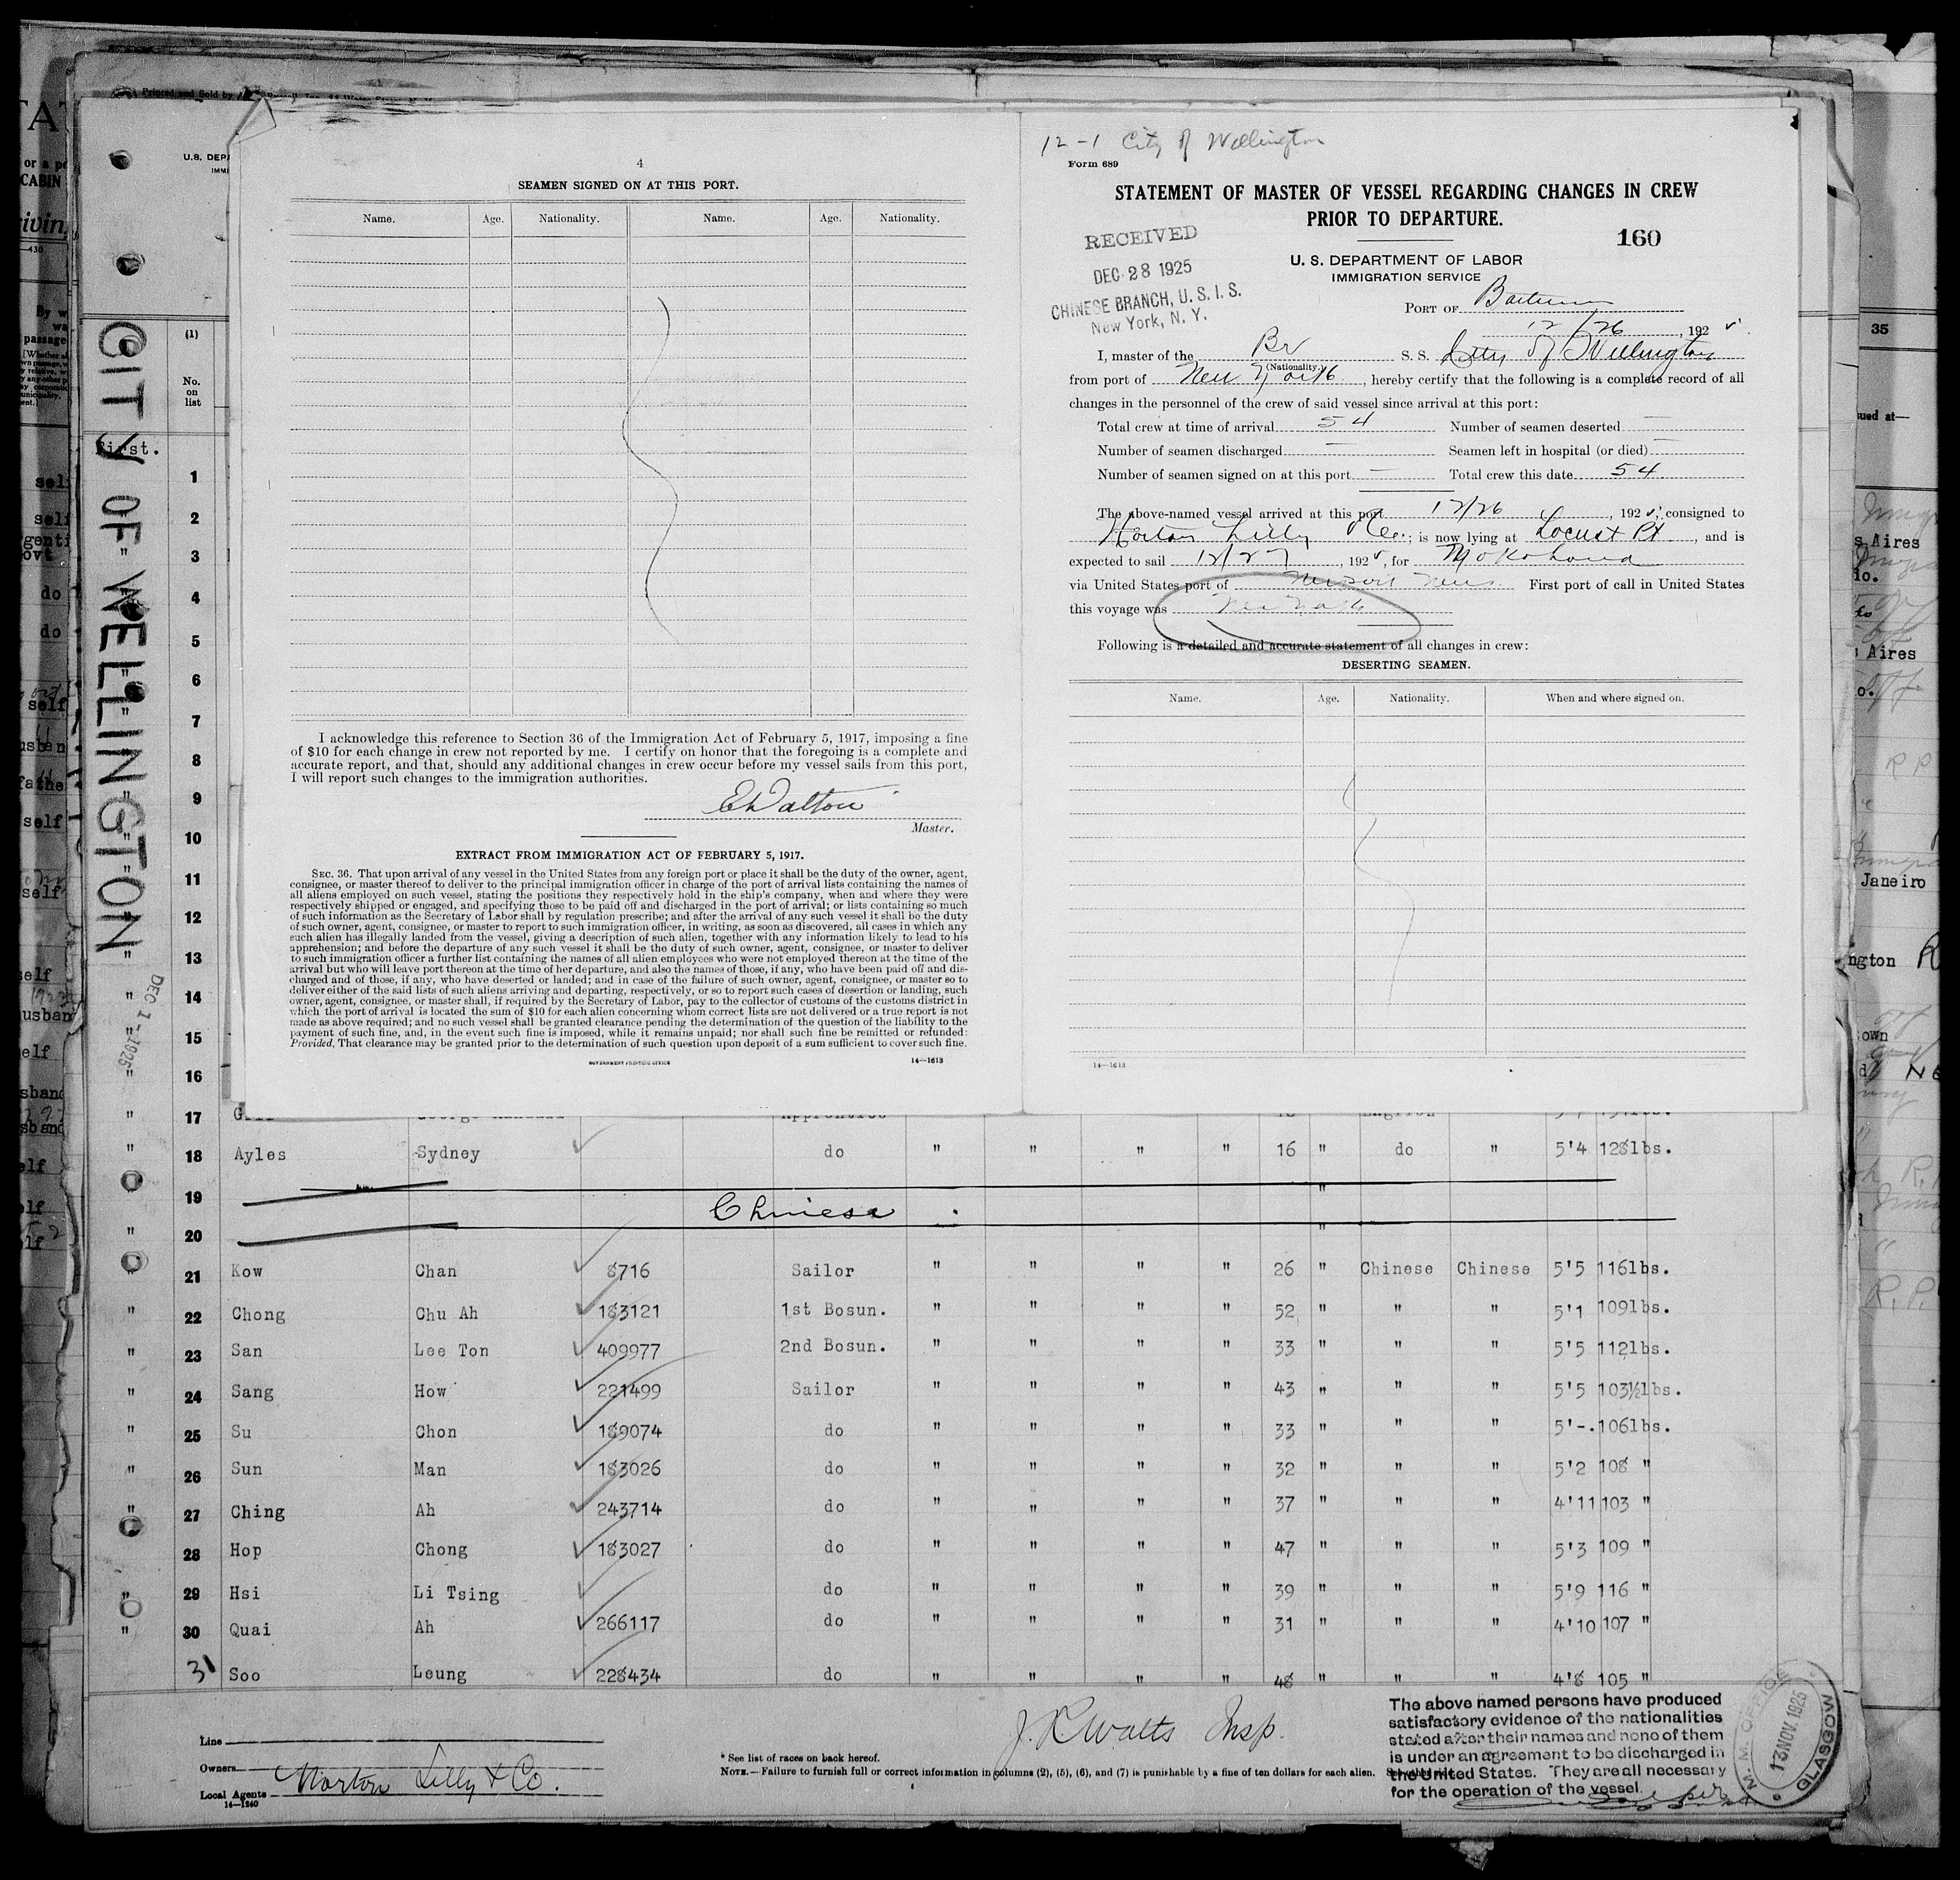 4
SEAMEN SIGNED ON AT THIS PORT.
Name. Age. Nationality. Name. Age. Nationality.
I acknowledge this reference to Section 36 of the Immigration Act of February 5, 1917, imposing a fine
of $10 for each change in crew not reported by me. I certify on honor that the foregoing is a complete and
accurate report, and that, should any additional changes in crew occur before my vessel sails from this port,
I will report such changes to the immigration authorities.
Dalton
Master.
EXTRACT FROM IMMIGRATION ACT OF FEBRUARY 5, 1917.
SEC. 36. That upon arrival of any vessel in the United States from any foreign port or place it shall be the duty of the owner, agent,
consignee, or master thereof to deliver to the principal immigration officer in charge of the port of arrival lists containing the names of
all aliens employed on such vessel, stating the positions they respectively hold in the ship's company, when and where they were
respectively shipped or engaged, and specifying those to be paid off and discharged in the port of arrival; or lists containing so much
of such information as the Secretary of Labor shall by regulation prescribe; and after the arrival of any such vessel it shall be the duty
of such owner, agent, consignee, or master to report to such immigration officer, in writing, as soon as discovered, all cases in which any
such alien has illegally landed from the vessel, giving a description of such alien, together with any information likely to lead to his
apprehension; and before the departure of any such vessel it shall be the duty of such owner, agent, consignee, or master to deliver
to such immigration officer a further list containing the names of all alien employees who were not employed thereon at the time of the
arrival but who will leave port thereon at the time of her departure, and also the names of those, if any, who have been paid off and dis-
charged and of those, if any, who have deserted or landed; and in case of the failure of such owner, agent, consignee, or master so to
deliver either of the said lists of such aliens arriving and departing, respectively, or so to report such cases of desertion or landing, such
owner, agent, consignee, or master shall, if required by the Secretary of Labor, pay to the collector of customs of the customs district in
which the port of arrival is located the sum of $10 for each alien concerning whom correct lists are not delivered or a true report is not
made as above required; and no such vessel shall be granted clearance pending the determination of the question of the liability to the
payment of such fine, and, in the event such fine is imposed, while it remains unpaid; nor shall such fine be remitted or refunded:
Provided, That clearance may be granted prior to the determination of such question upon deposit of a sum sufficient to cover such fine.
GOVERNMENT PRINTING OFFICE 14—1613
12-1 City of Wellington
Form 689
STATEMENT OF MASTER OF VESSEL REGARDING CHANGES IN CREW
PRIOR TO DEPARTURE.
160
RECEIVED
DEC 28 1925
CHINESE BRANCH, U. S. I. S.
New York, N. Y.
U. S. DEPARTMENT OF LABOR
IMMIGRATION SERVICE
PORT OF
12/26, 192
I, master of the Br S. S. City of Wellington
(Nationality.)
from port of New York, hereby certify that the following is a complete record of all
changes in the personnel of the crew of said vessel since arrival at this port:
Total crew at time of arrival 54 Number of seamen deserted —
Number of seamen discharged — Seamen left in hospital (or died) —
Number of seamen signed on at this port — Total crew this date 54
The above-named vessel arrived at this port 12/26, 192 ; consigned to
Norton Lilly & Co.; is now lying at Locust Pt, and is
expected to sail 12/27, 192 , for
via United States port of Newport News First port of call in United States
this voyage was New York
Following is a detailed and accurate statement of all changes in crew:
DESERTING SEAMEN.
Name. Age. Nationality. When and where signed on.
14—1613
CITY OF WELLINGTON
DEC 1-1925
U.S. DEP
IMMI
(1)
No. on list
First.
1
2
3
4
5
6
7
8
9
10
11
12
13
14
15
16
17
" 18 Ayles Sydney do " " " " 16 " do " 5'4 128lbs.
19
Chinese.
" 20
21 Kow Chan 8716 Sailor " " " " 26 " Chinese Chinese 5'5 116lbs.
" 22 Chong Chu Ah 183121 1st Bosun. " " " " 52 " " " 5'1 109lbs.
" 23 San Lee Ton 409977 2nd Bosun. " " " " 33 " " " 5'5 112lbs.
" 24 Sang How 221499 Sailor " " " " 43 " " " 5'5 103½lbs.
" 25 Su Chon 189074 do " " " " 33 " " " 5'-. 106lbs.
" 26 Sun Man 183026 do " " " " 32 " " " 5'2 108 "
" 27 Ching Ah 243714 do " " " " 37 " " " 4'11 103 "
28 Hop Chong 183027 do " " " " 47 " " " 5'3 109 "
" 29 Hsi Li Tsing do " " " " 39 " " " 5'9 116 "
" 30 Quai Ah 266117 do " " " " 31 " " " 4'10 107 "
31 Soo Leung 228434 do " " " " 48 " " " 4'8 105 "
Line
Owners
Local Agents Norton Lilly & Co.
14—1240
J. R. Watts Insp.
* See list of races on back hereof.
NOTE.—Failure to furnish full or correct information in columns (2), (5), (6), and (7) is punishable by a fine of ten dollars for each alien.
The above named persons have produced
satisfactory evidence of the nationalities
stated after their names and none of them
is under an agreement to be discharged in
the United States. They are all necessary
for the operation of the vessel.
M. M. OFFICE
13 NOV. 1925
GLASGOW
35
sued at—
s Aires
Aires
Janeiro
ngton